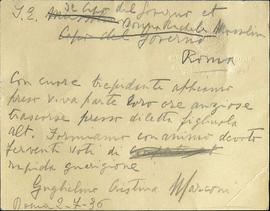 S.E. il Capo del Governo et
Donna Rachele Mussolini
Capo del Governo
Roma
Con cuore trepidante abbiamo
preso viva parte loro ore anziose
trascorse presso diletta figliuola
alt. Formiamo con animo devoto
ferventi voti di
rapida guarigione
Guglielmo Cristina Marconi
Roma 2-7-36